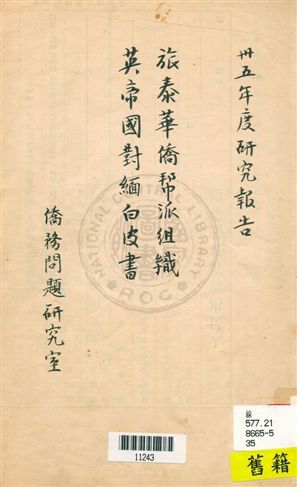 卅五年度研究報告
旅泰華僑幫派組織
英帝國對緬白皮書
僑務問題研究室
NATIONAL CENTRAL LIBRARY
ROC
線
577.21
8665-5
35
舊籍
11243